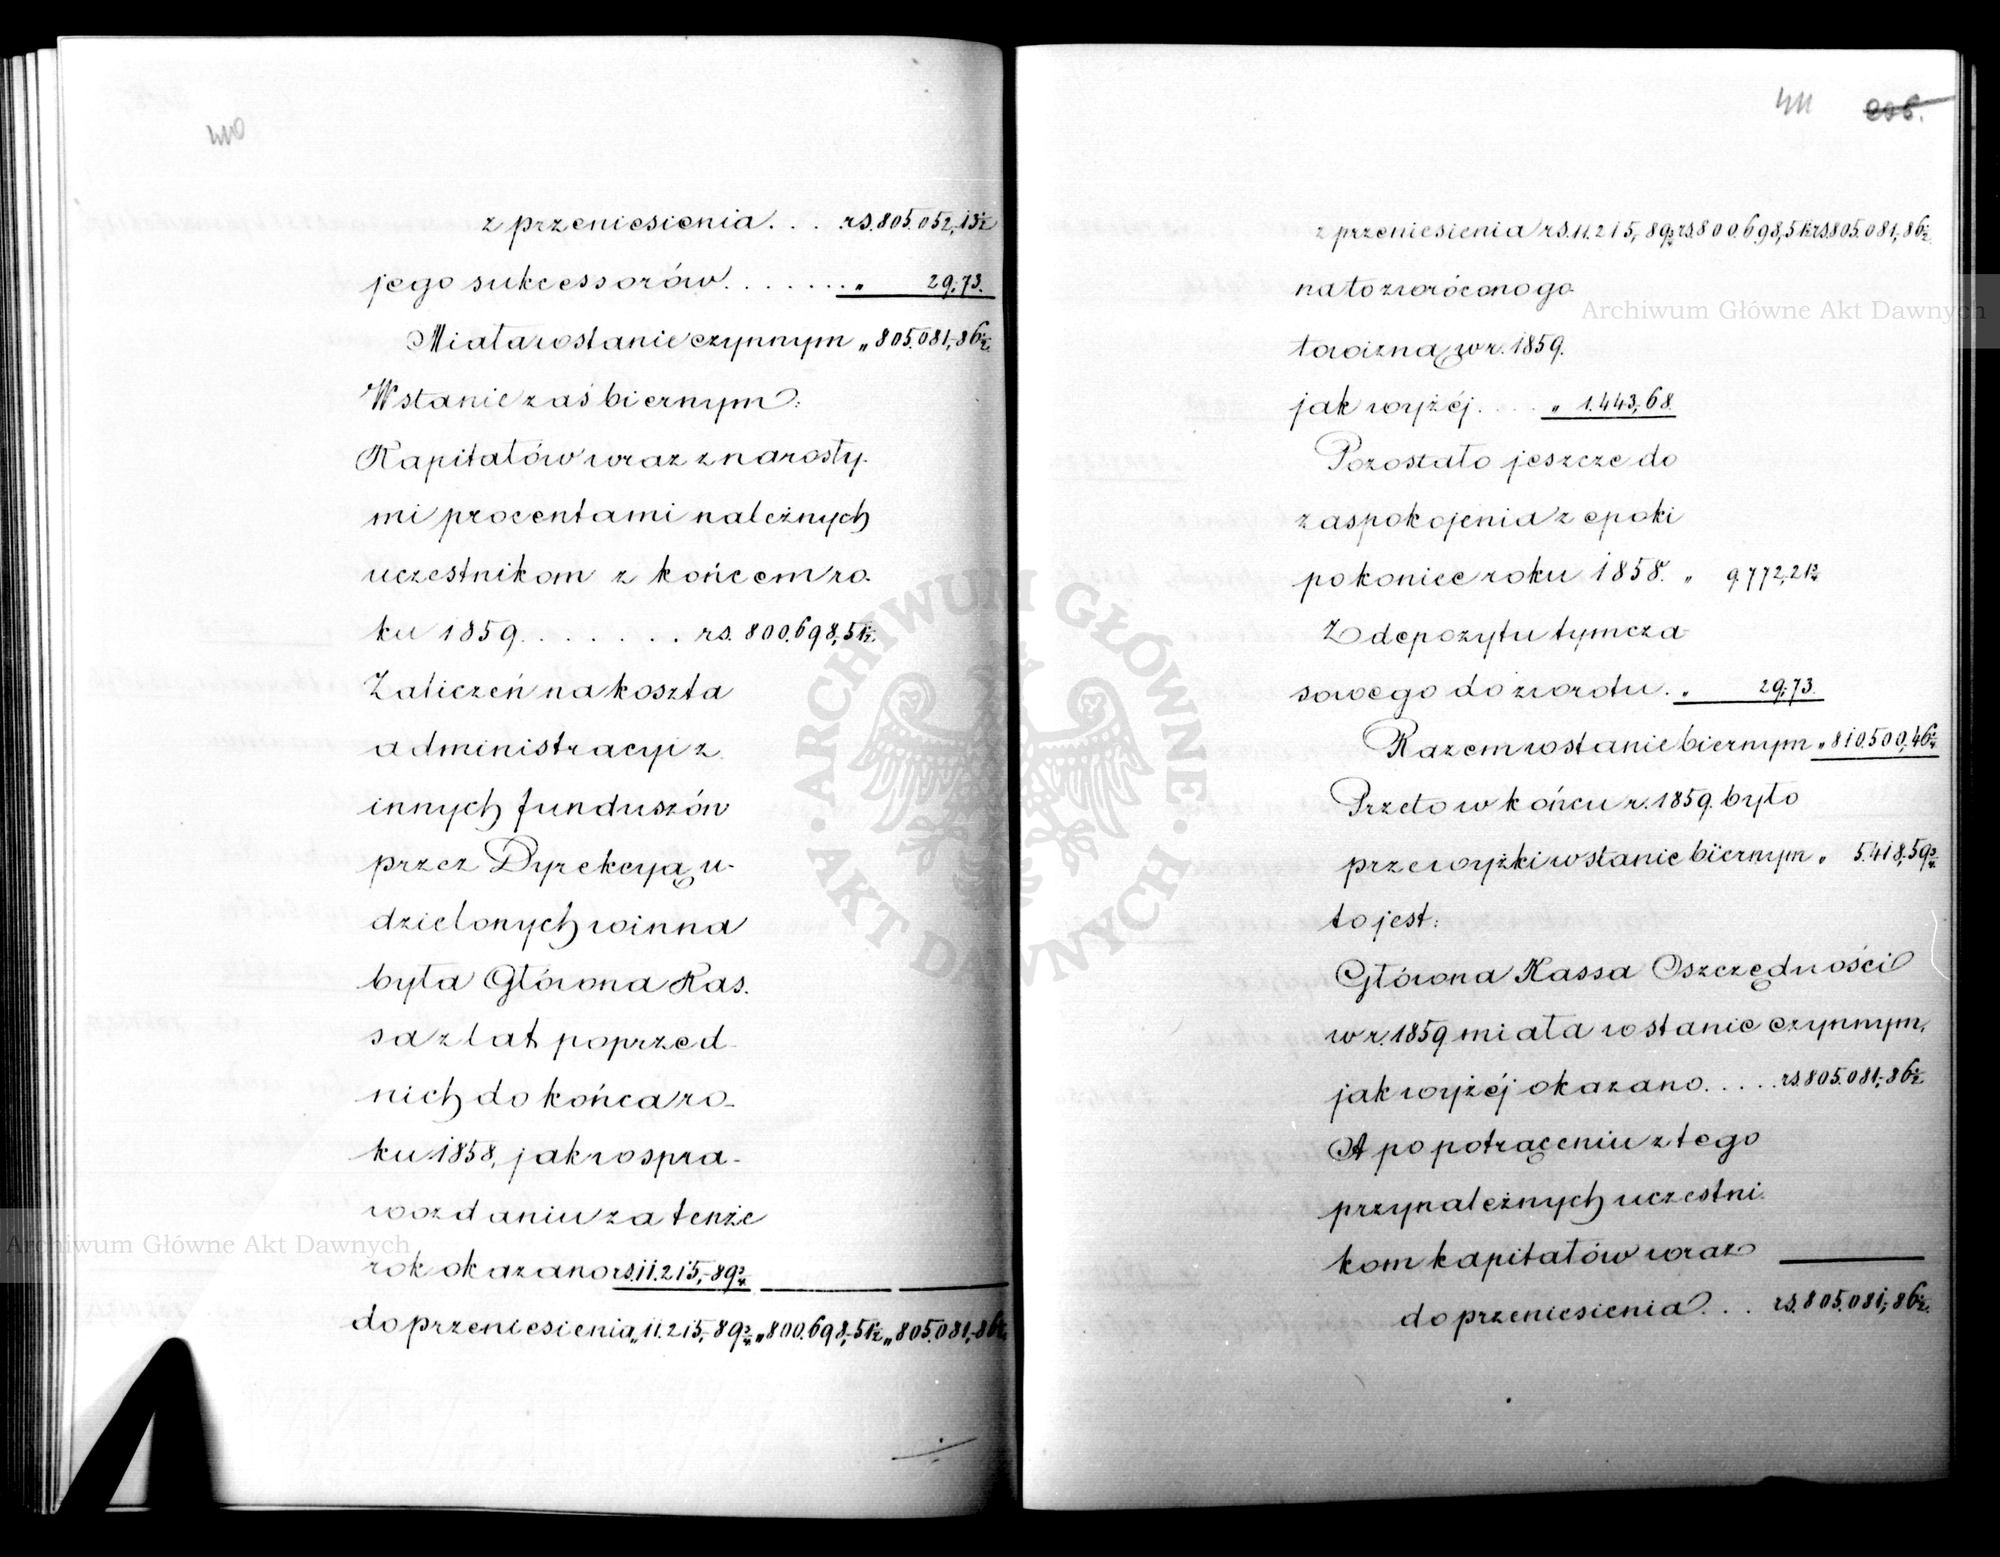 z przeniesienia. . . . rs. 805.052,13½
jego sukcessorów. . . . . . . „ 29,73.
Miała w stanie czynnym „ 805.081,86½
W stanie zaś biernym:
Kapitałów wraz z narosły-
mi procentami należnych
uczestnikom z końcem ro-
ku 1859. . . . . . . . rs. 800.698,51½
Zaliczeń na koszta
administracyi z
innych funduszów
przez Dyrekcyą u-
dzielonych winna
była Główna Kas-
sa z lat poprzed-
nich do końca ro-
ku 1858, jak w spra-
wozdaniu za tenże
rok okazano rs. 11.215,89¾
do przeniesienia „ 11.215,89¾ „ 800.698,51½ „ 805.081,86½
411
z przeniesienia rs. 11.215,89¾ rs. 800.698,51½ rs. 805.081,86½
na to zwróconogo
towizną w r. 1859.
jak wyżéj. . . . „ 1.443,68.
Pozostało jeszcze do
zaspokojenia z epoki
po koniec roku 1858. „ 9.772,21¾
Z depozytu tymcza-
sowego do zwrotu. „ 29,73.
Razem w stanie biernym „ 810.500,46¼
Przeto w końcu r. 1859. było
przewyżki w stanie biernym „ 5.418,59¾
to jest:
Główna Kassa Oszczędności
w r. 1859 miała w stanie czynnym,
jak wyżéj okazano. . . . . rs. 805.081,86½
A po potrąceniu z tego
przynależnych uczestni-
kom kapitałów wraz
do przeniesienia. . . rs. 805.081,86½.
Archiwum Główne Akt Dawnych
Archiwum Główne Akt Dawnych
ARCHIWUM GŁÓWNE · AKT DAWNYCH ·